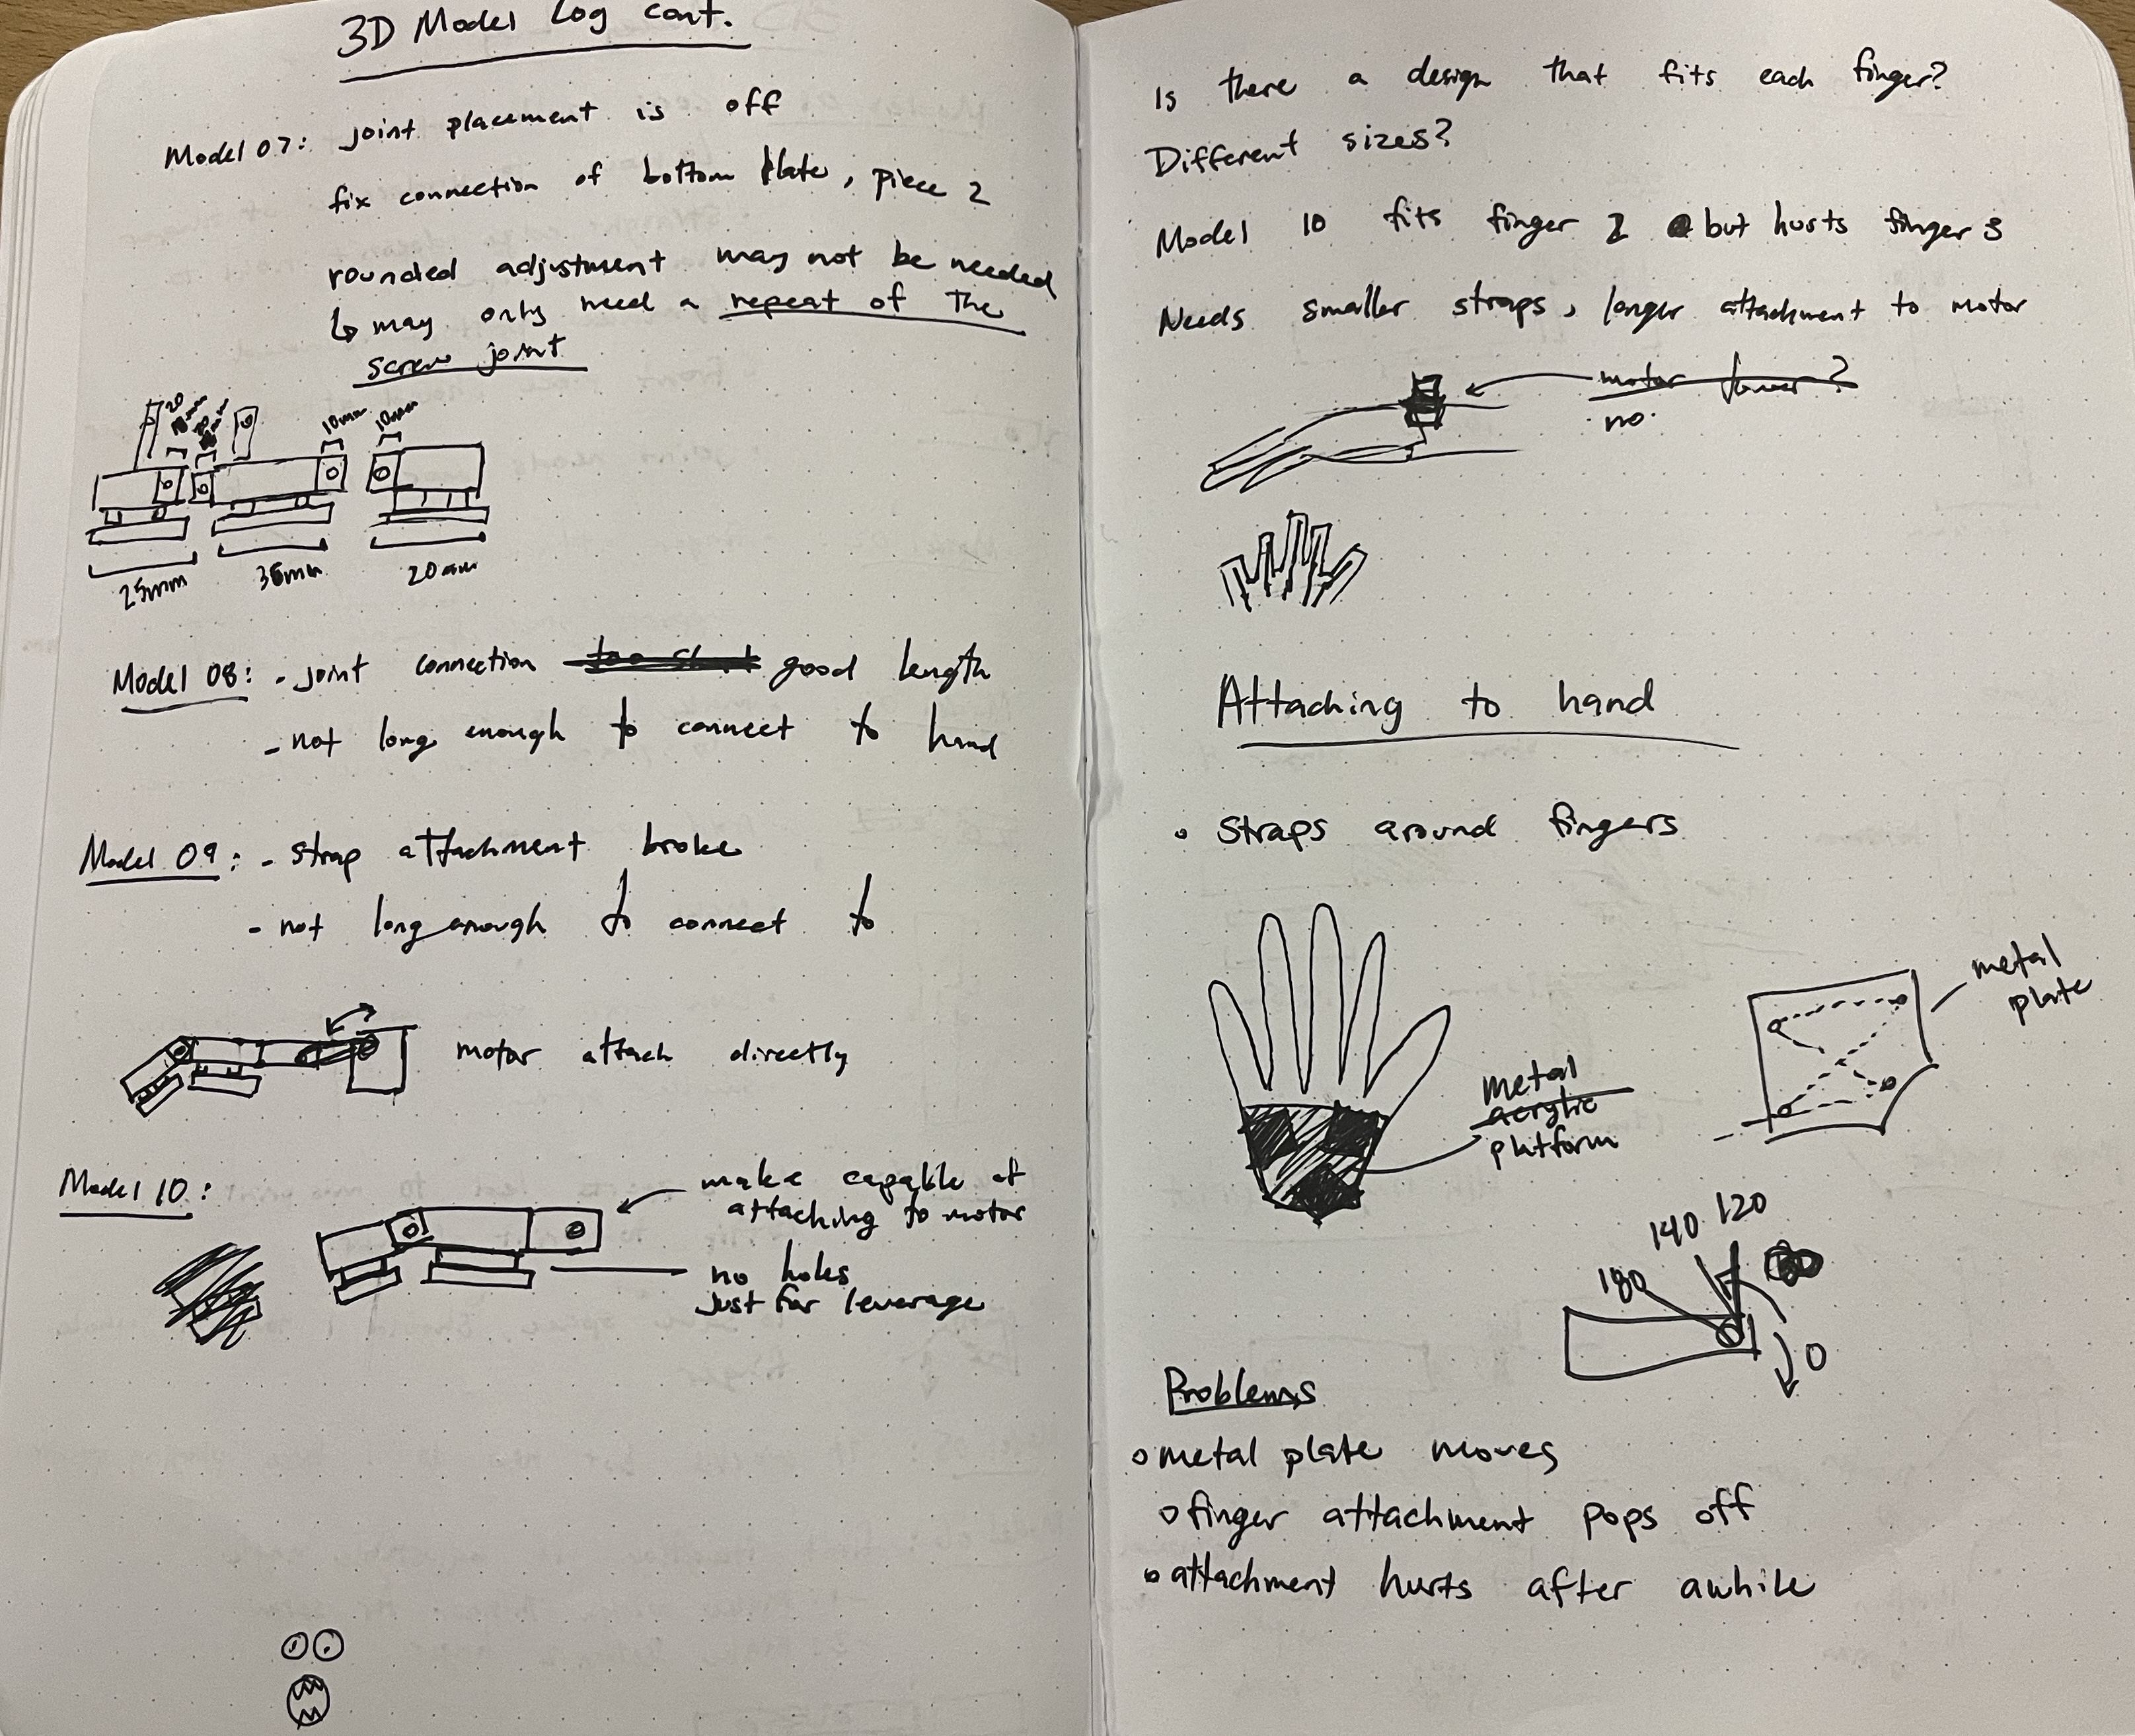 3D Model Log cont.
Model 07: joint placement is off
fix connection of bottom plate, piece 2
rounded adjustment may not be needed
↳ may only need a repeat of the
screw joint
20
10mm 10mm
25mm 36mm 20mm
Model 08: - joint connection good length
- not long enough to connect to hand
Model 09: - strap attachment broke
- not long enough to connect to
motor attach directly
Model 10:
make capable of
attaching to motor
no holes
just for leverage
Is there a design that fits each finger?
Different sizes?
Model 10 fits finger 2 but hurts finger 3
Needs smaller straps, longer attachment to motor
motor lower?
no.
Attaching to hand
Straps around fingers
metal
plate
metal
acrylic
platform
180 140 120
0
Problems
metal plate moves
finger attachment pops off
attachment hurts after awhile